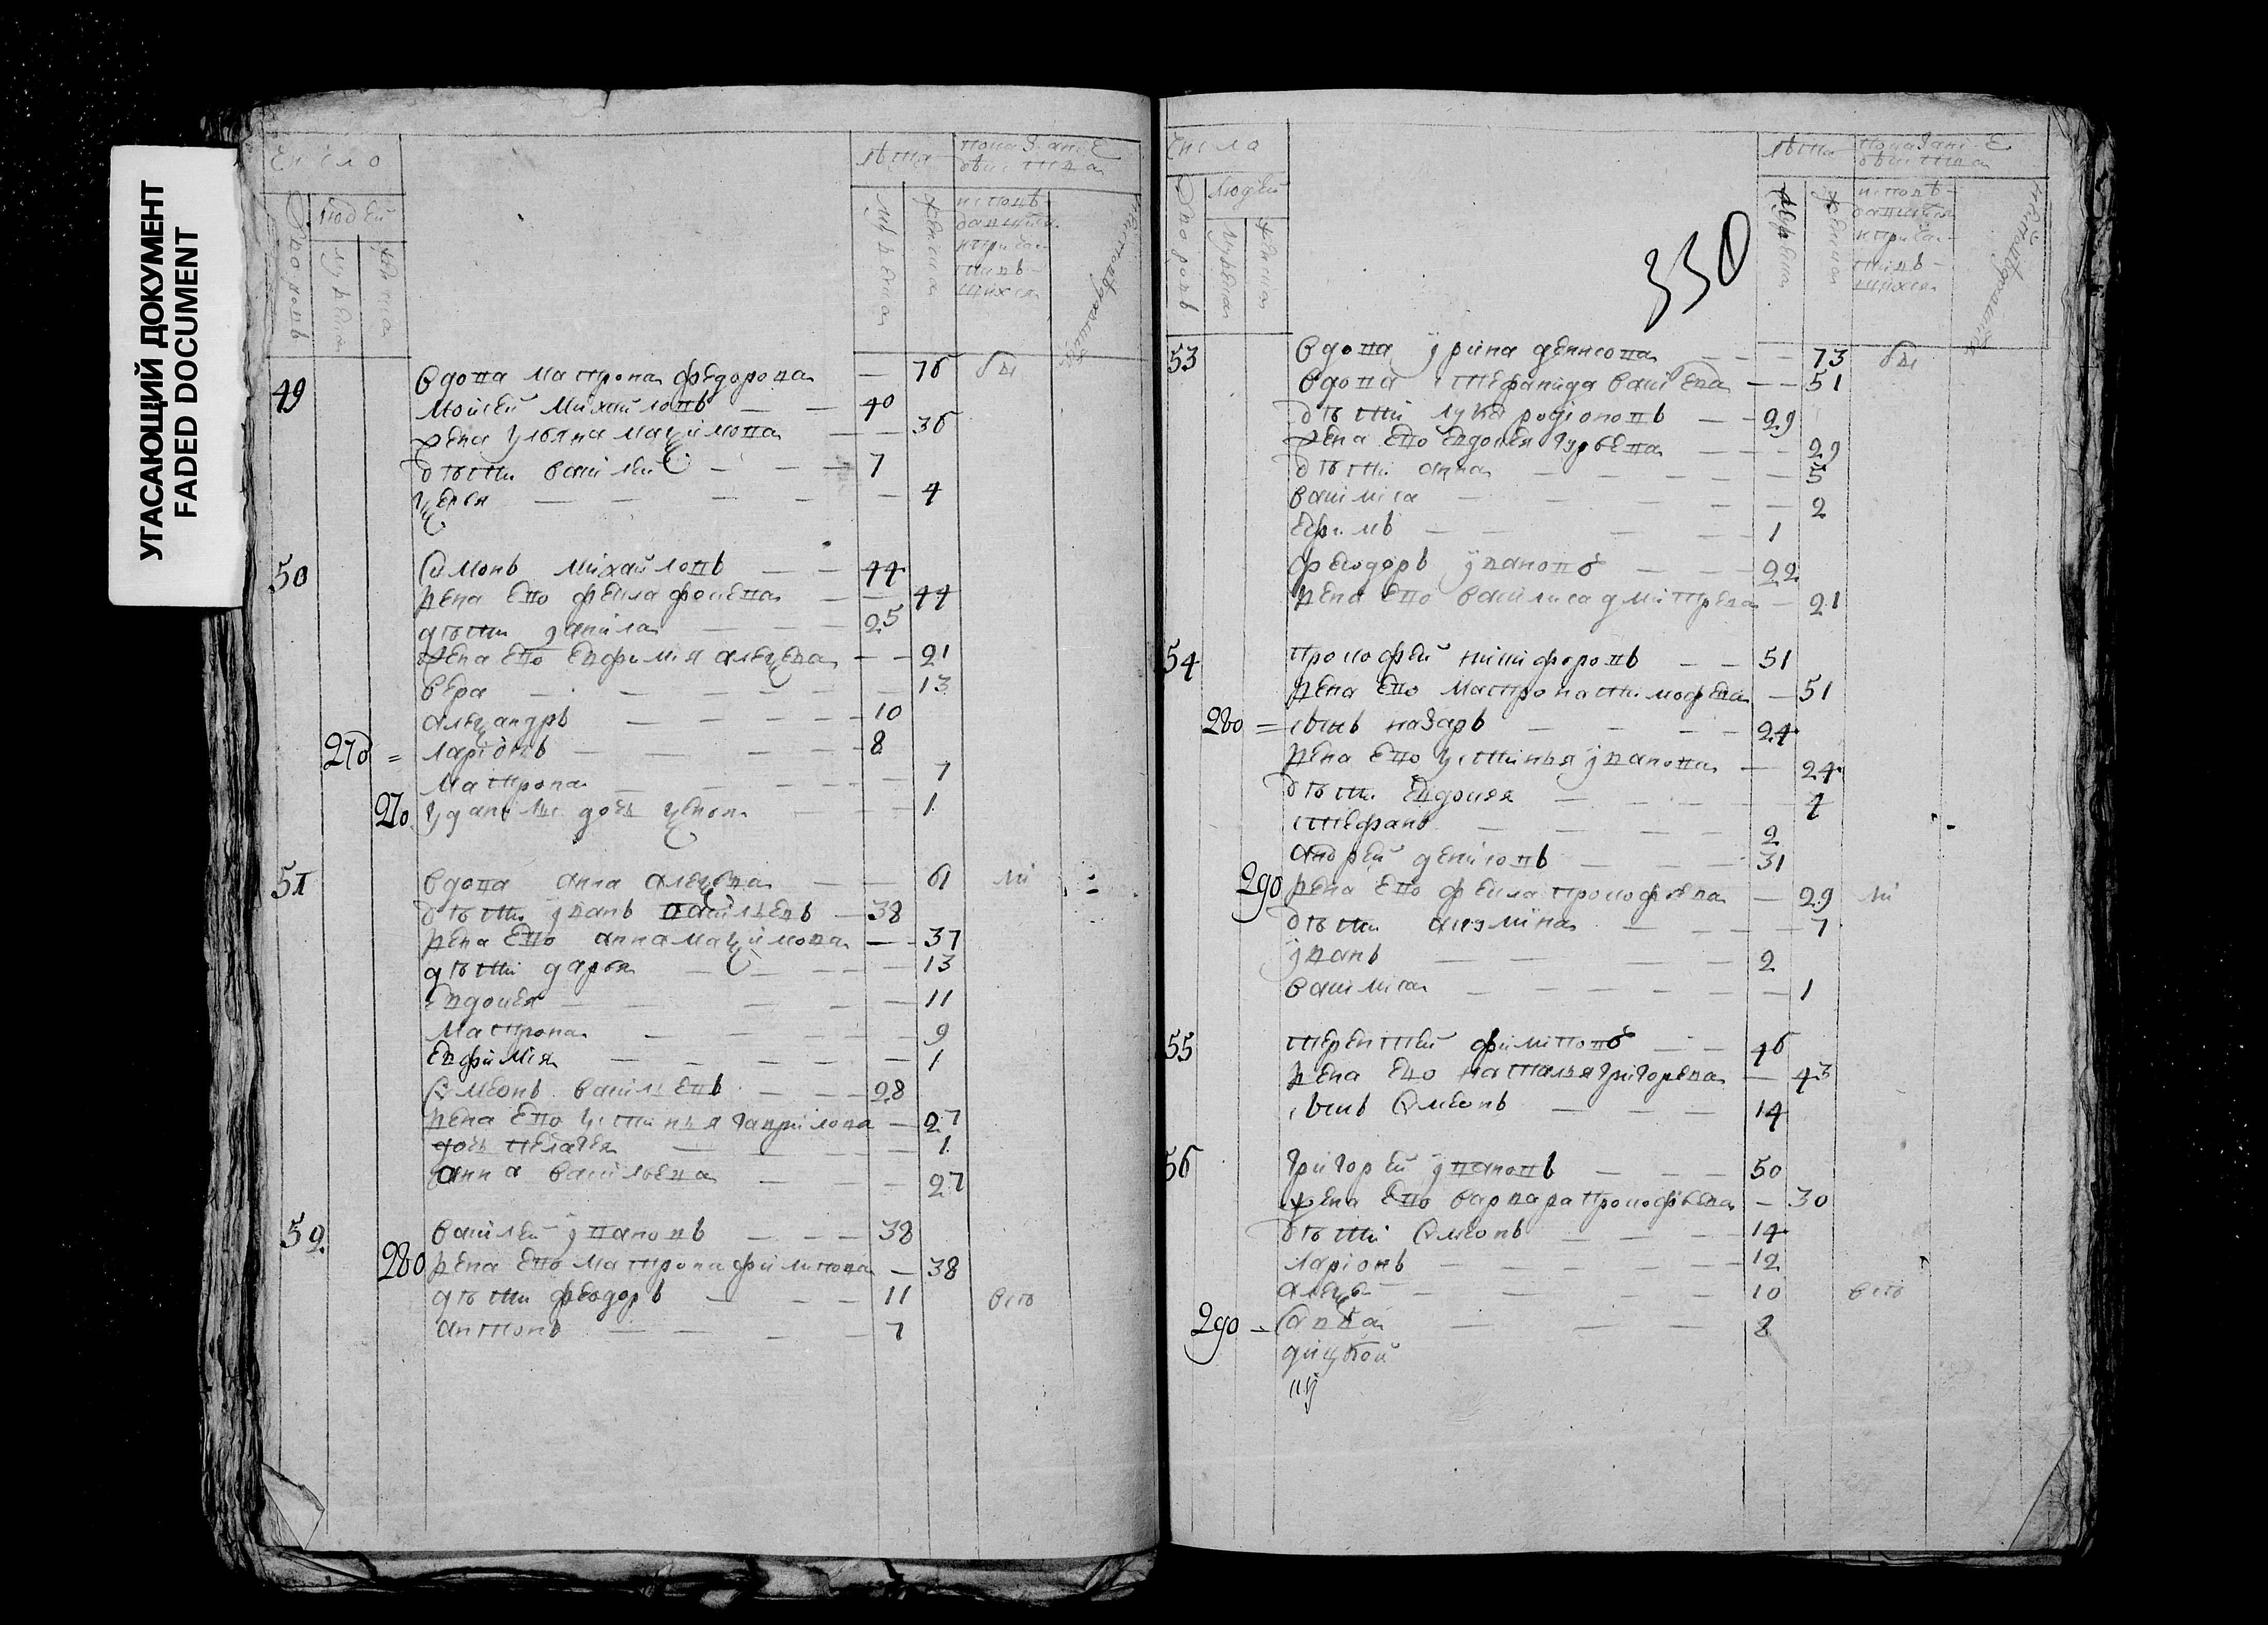 УГАСАЮЩИЙ ДОКУМЕНТ
FADED DOCUMENT
Число
Дворовъ
людей
мужска
женска
лѣта
мужска
женска
показание
действа
исповѣ-
давшихся
и прича-
стивъ-
шихся
49
вдова матрона федорова — 76 бы
моисей михайловъ — — 40
жена ульяна маѯимова — — 36
дѣти василей — — — 7
— — — — — 4
50
симонъ михайловъ — — 44
жена ево фекла фокева — — 44
дѣти данила — — — 25
жена ево евфимия алеѯева — — 21
вера — — — — — 13
алеѯандръ — — — — 10
270 = ларионъ — — — — 8
матрона — — — — 7
270 у данилы дочь ѯения — — 1
51
вдова анна алеѯева — — 61 ли
дѣти иванъ васильевъ — 38
жена ево анна маѯимова — — 37
дѣти дарья — — — — 13
евдокея — — — — 11
матрона — — — — 9
евфимия — — — — — 1
симеонъ васильевъ — — 28
жена ево устинья гаврилова — 27
дочь пелагея — — — — 1
анна васильева — — — 27
52
василей ивановъ — — — 38
280 жена ево матрона филипова — 38
дѣти феодоръ — — — 11 всѣ
антонъ — — — — 7
число
Дворовъ
людей
мужска
женска
лѣта
мужска
женска
показание
действа
исповѣ-
давшихся
и прича-
стивъ-
шихся
330
53
вдова ирина денисова — — — 73 бы
вдова стефанида васильева — — 51
дѣти лука родионовъ — — 29
жена ево евдокея гурьева — — — 29
дѣти анна — — — — — 5
василиса — — — — — 2
ефимъ — — — — 1
феодоръ ивановъ — — — 22
жена ево василиса дмитрева — 21
54
прокофей никифоровъ — — 51
жена ево матрона тимофева — 51
280 = сынъ назаръ — — — — 24
жена ево устинья иванова — 24
дѣти евдокея — — — —
стефанъ — — — — 2
андрей денисовъ — — — 31
290 жена ево фекла прокофьева — 29 ли
дѣти акулина — — — — 7
иванъ — — — — 2
василиса — — — — — — 1
55
терентей филиповъ — — 46
жена ево наталья григорева — 43
сынъ симеонъ — — — 14
56
григорей ивановъ — — — 50
жена ево варвара прокофьева — 30
дѣти симеонъ — — — 14
ларионъ — — — — — 12
алеѯѣй — — — — 10 всѣ
290 — савва — — — 8